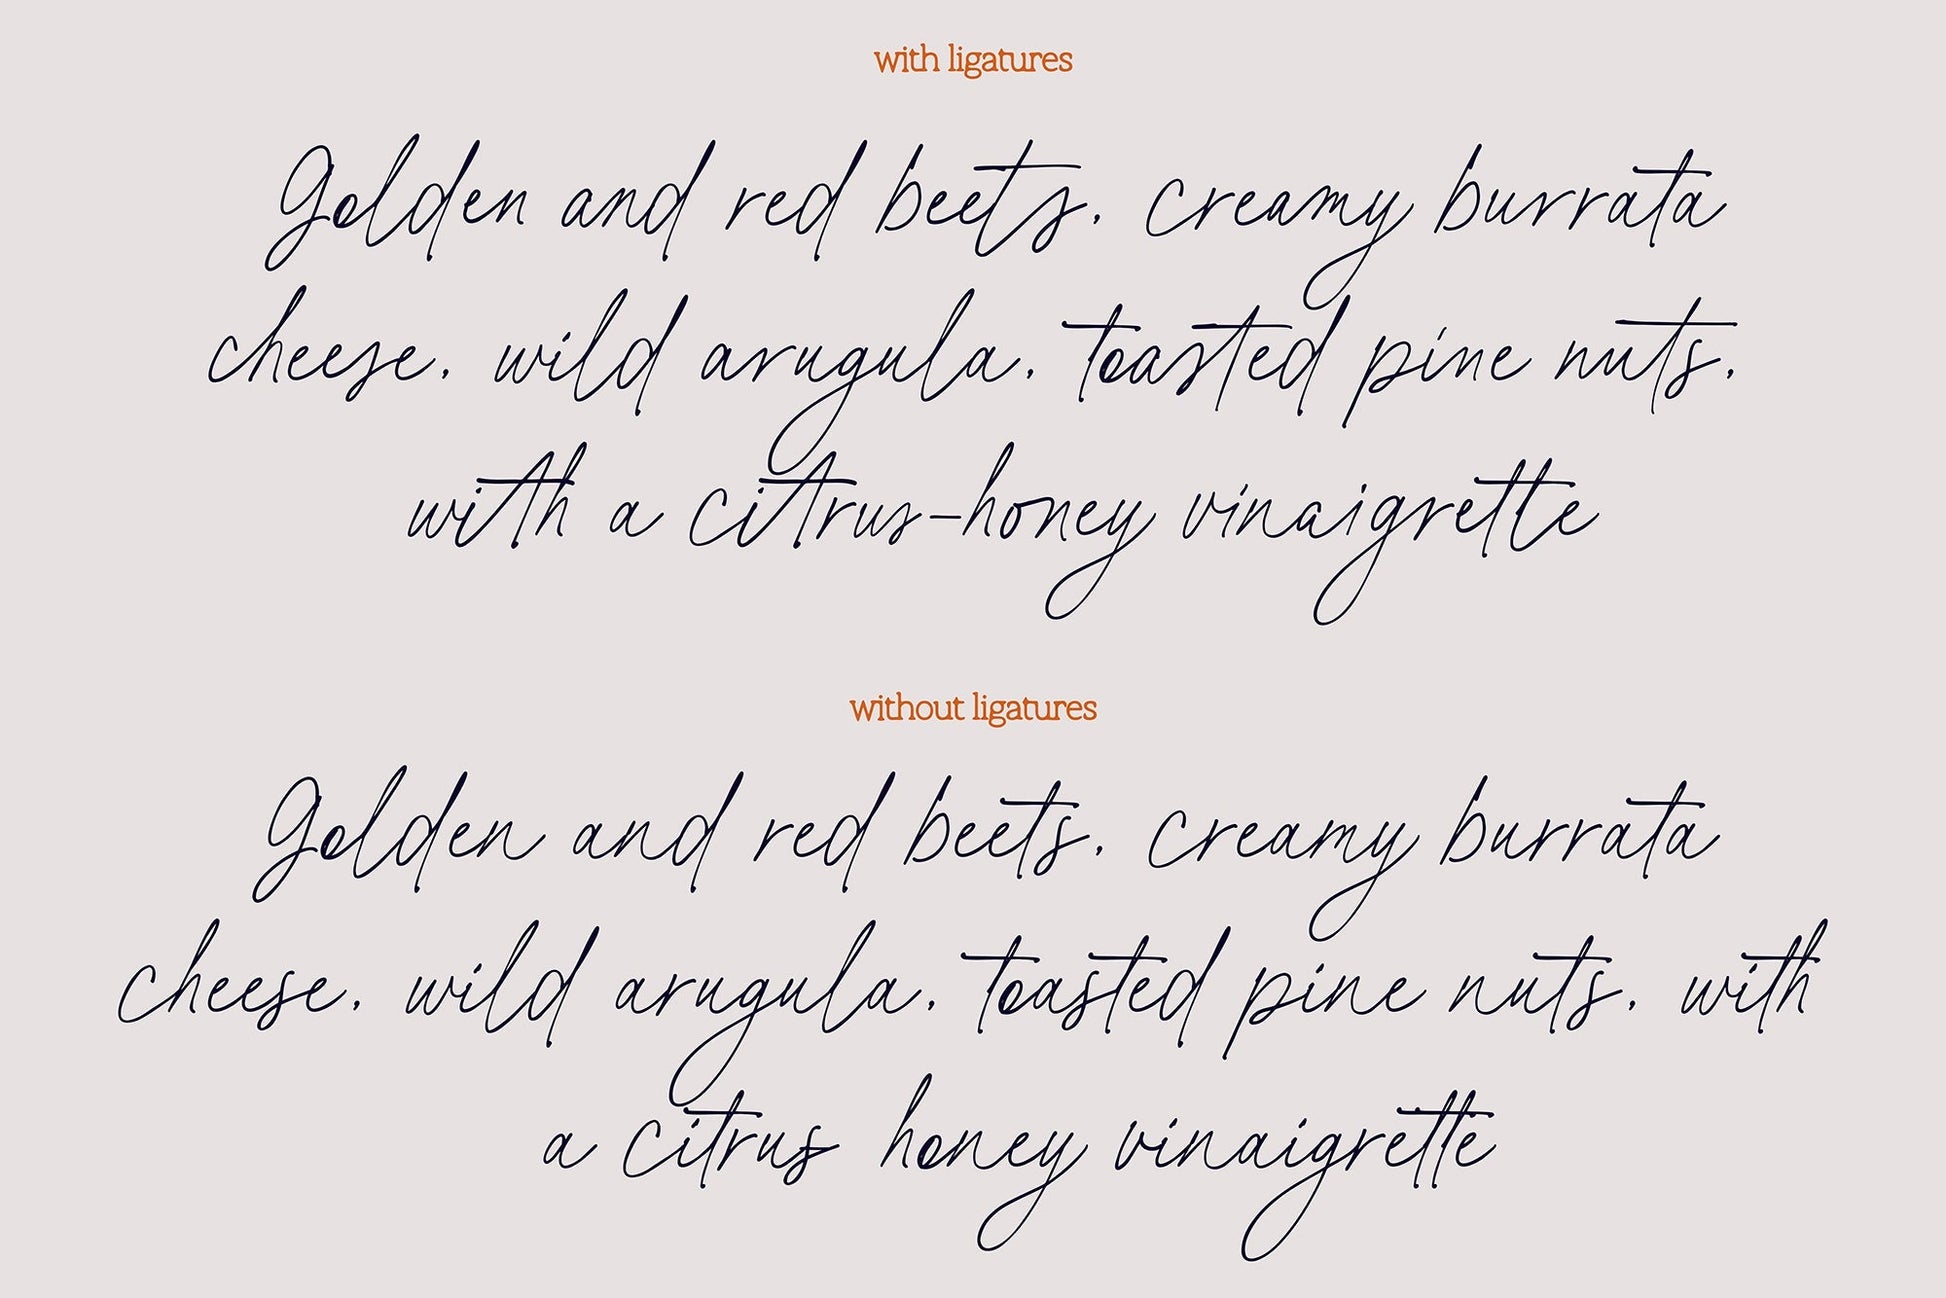 with ligatures
Golden and red beets, creamy burrata
cheese, wild arugula, toasted pine nuts,
with a citrus-honey vinaigrette
without ligatures
Golden and red beets, creamy burrata
cheese, wild arugula, toasted pine nuts, with
a citrus honey vinaigrette